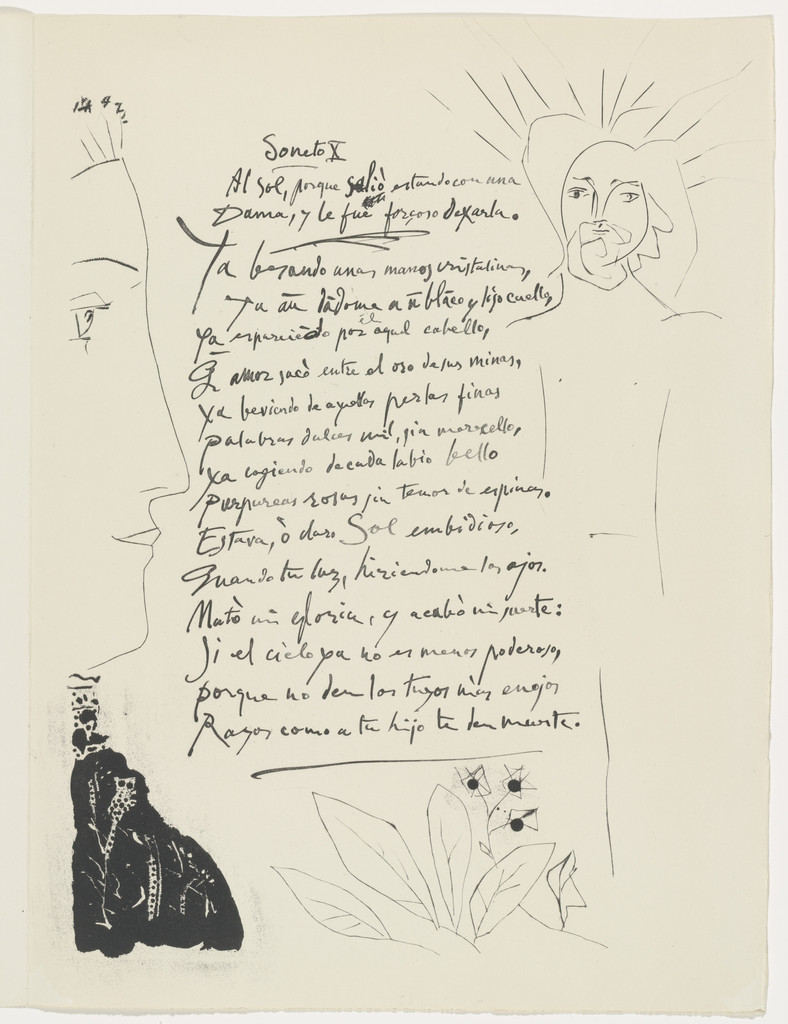 Soneto X
Al Sol, porque saliò estando con una
Dama, y le fue forçoso dexarla.
Ya besando unas manos cristalinas,
Ya añudãdome a ũ blãco y liso cuello,
Ya esparciēdo por èl aquel cabello,
Q̄ amor sacò entre el oro de sus minas,
Ya beviendo de aquellas perlas finas
palabras dulces mil, sin merecello,
Ya cogiendo de cada labio bello
Purpureas rosas sin temor de espinas.
Estava, ò claro Sol embidioso,
Quando tu luz, hiriendome los ojos.
Matò mi gloria, y acabò mi suerte:
Si el cielo ya no es menos poderoso,
porque no den los tuyos mas enojos
Rayos como a tu hijo te den muerte.